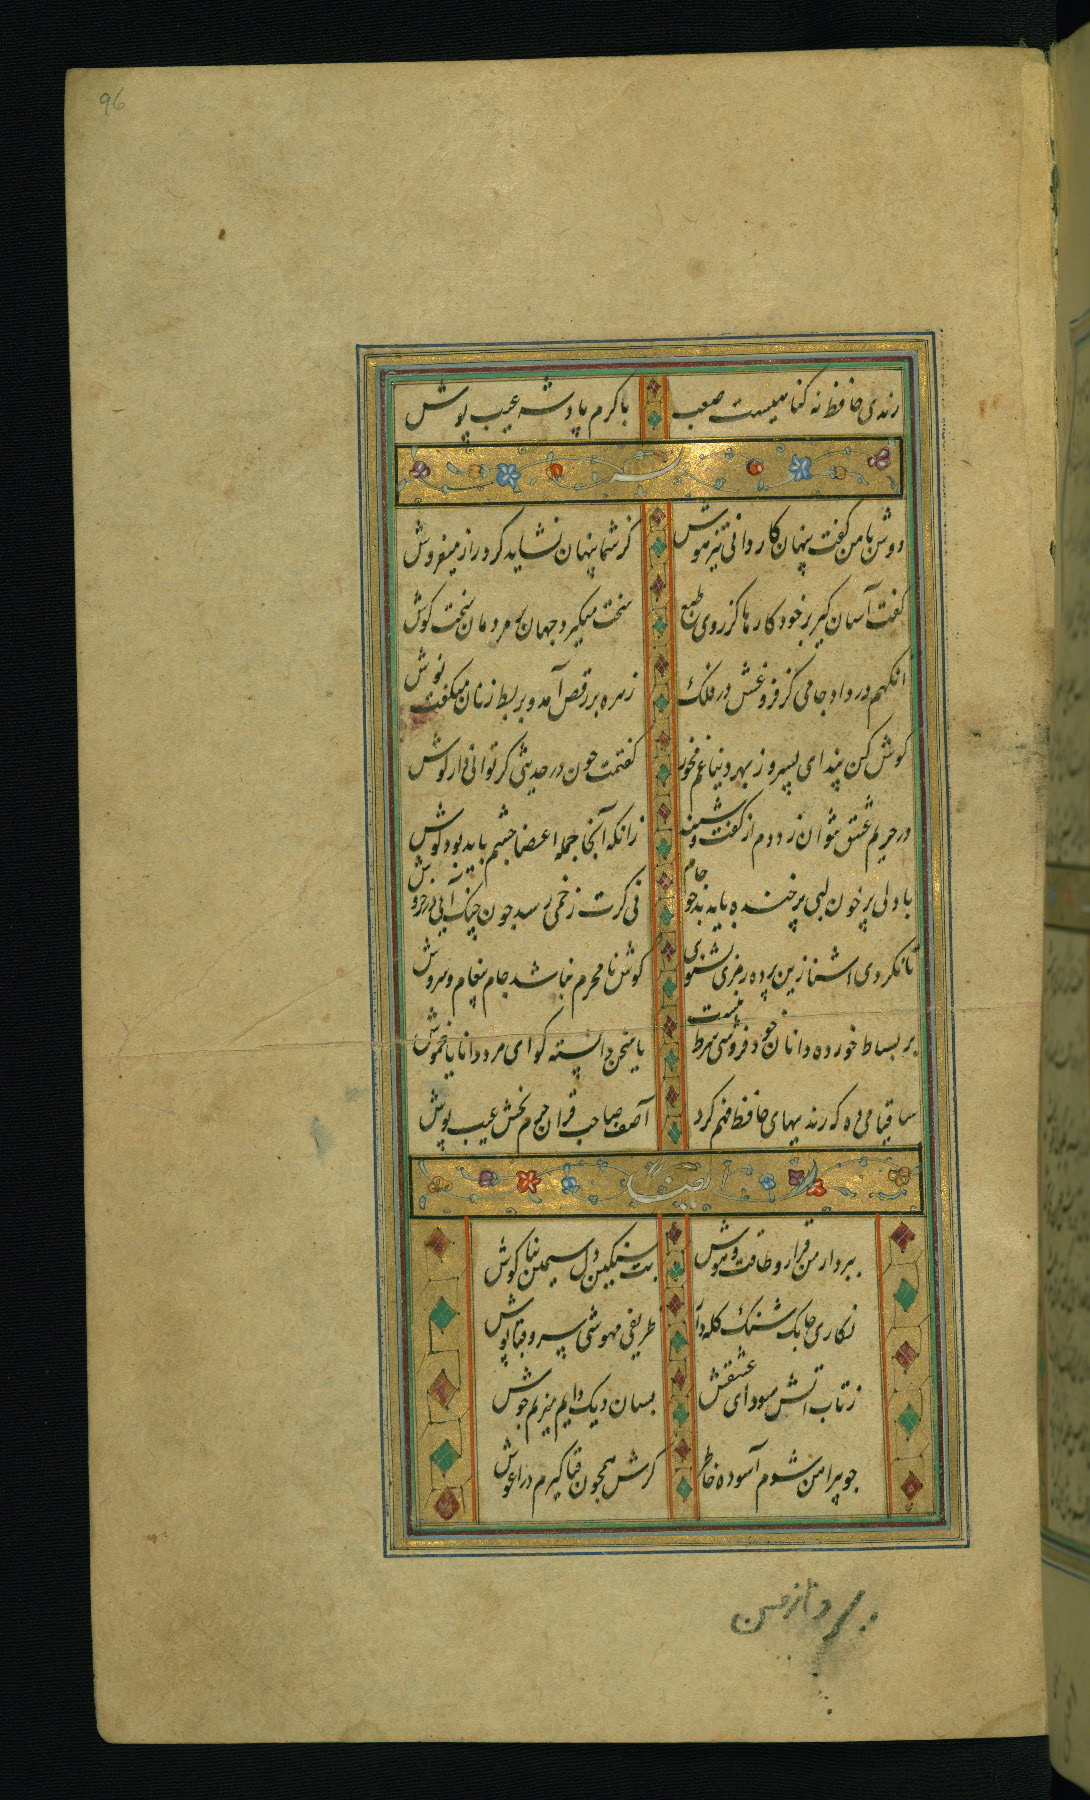 96
رندی حافظ نه کناهیست صعب با کرم پادشه عیب پوش
دوش با من کفت پنهان کاردانی تیزهوش کز شما پنهان نشاید کرد راز میفروش
کفت آسان کیر بر خود کارها کز روی طبع سخت میکیرد جهان بر مردمان سخت کوش
انکهم در داد جامی کز فروغش در فلک زهره بر رقص آمد و بربط زنان میکفت نوش
کوش کن پند ای پسر وز بهر دنیا غم مخور کفتمت چون در حدیثی کر توانی دار کوش
در حریم عشق نتوان زد دم از کفت و شنید زانکه آنجا جمله اعضا چشم باید بود و کوش
با دلی پر خون لبی پر خنده باید همچو جام نی کرت زخمی رسد چون چنک آیی در خروش
تا نکردی اشنا زین پرده رمزی نشنوی کوش نامحرم نباشد جای پیغام و سروش
بر بساط خورده دانان خود فروشی شرط نیست یا سخن دانسته کو ای مرد دانا یا خموش
ساقیا می ده که رندیهای حافظ فهم کرد آصف صاحب قران جرم بخش عیب پوش
ایضا
ببرد از من قرار و طاقت و هوش بت سنکین دل سیمین بناکوش
نکاری چابک شنک کله دار ظریفی مهوشی پیرو قباپوش
ز تاب اتش سودای عشقش بسان دیک دایم میزنم جوش
چو پیراهن شوم آسوده خاطر کرش همچون قبا کیرم در اغوش
ببرد از من